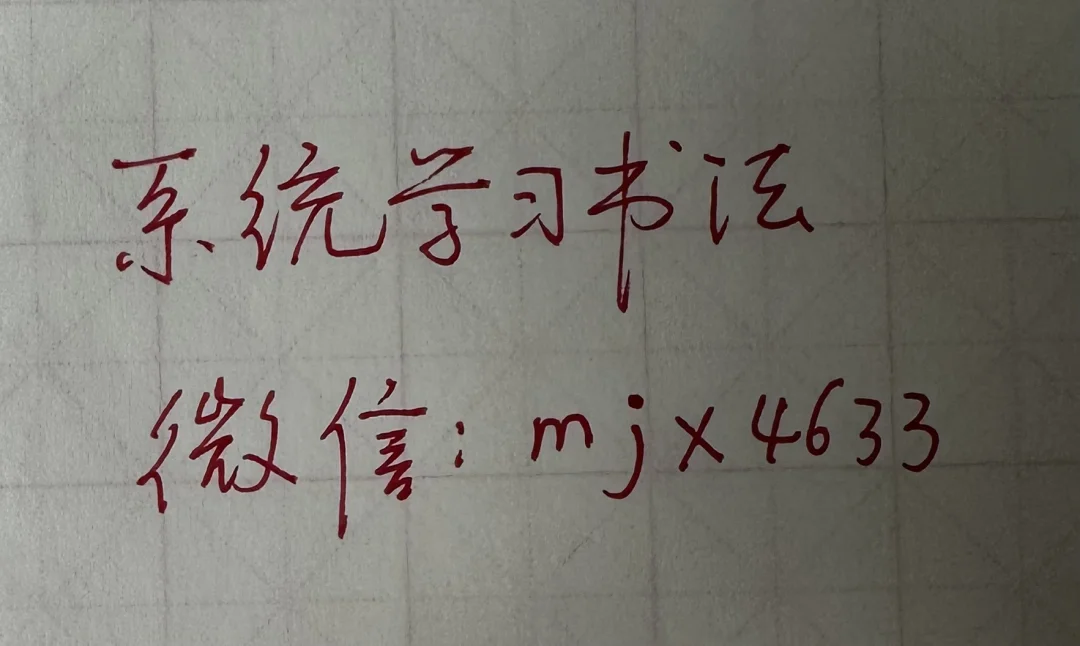 系统学习书法
微信：mjx4633